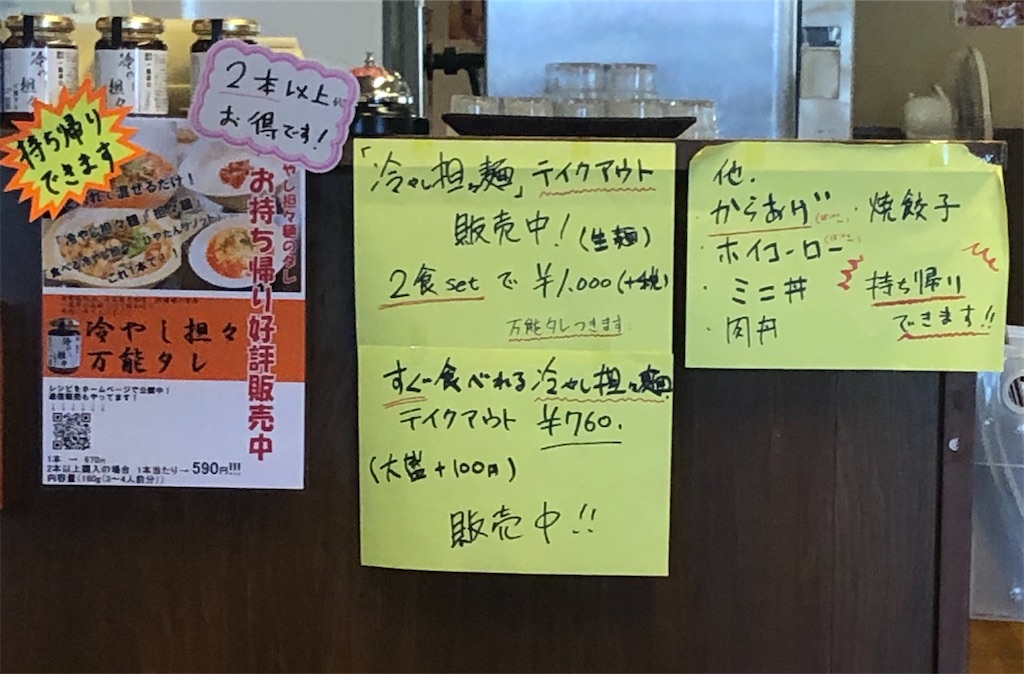 冷やし担々
冷やし担々
2本以上が
お得です!
持ち帰り
できます
混ぜるだけ!
「冷やし担々麺」「担々麺」
これ1本で!!
やし担々麺のタレ
お持ち帰り好評販売中
冷やし担々
万能タレ
レシピをホームページで公開中!
通信販売もやってます!
1本 → 670円
2本以上購入の場合 1本当たり→590円!!!
内容量(180g(3〜4人前分))
「冷やし担々麺」テイクアウト
販売中!(生麺)
2食setで ¥1.000(+税)
万能タレつきます
すぐ食べれる冷やし担々麺
テイクアウト ¥760.
(大盛+100円)
販売中!!
他.
・からあげ ・焼餃子
・ホイコーロー
・ミニ丼
・肉丼
持ち帰り
できます!!